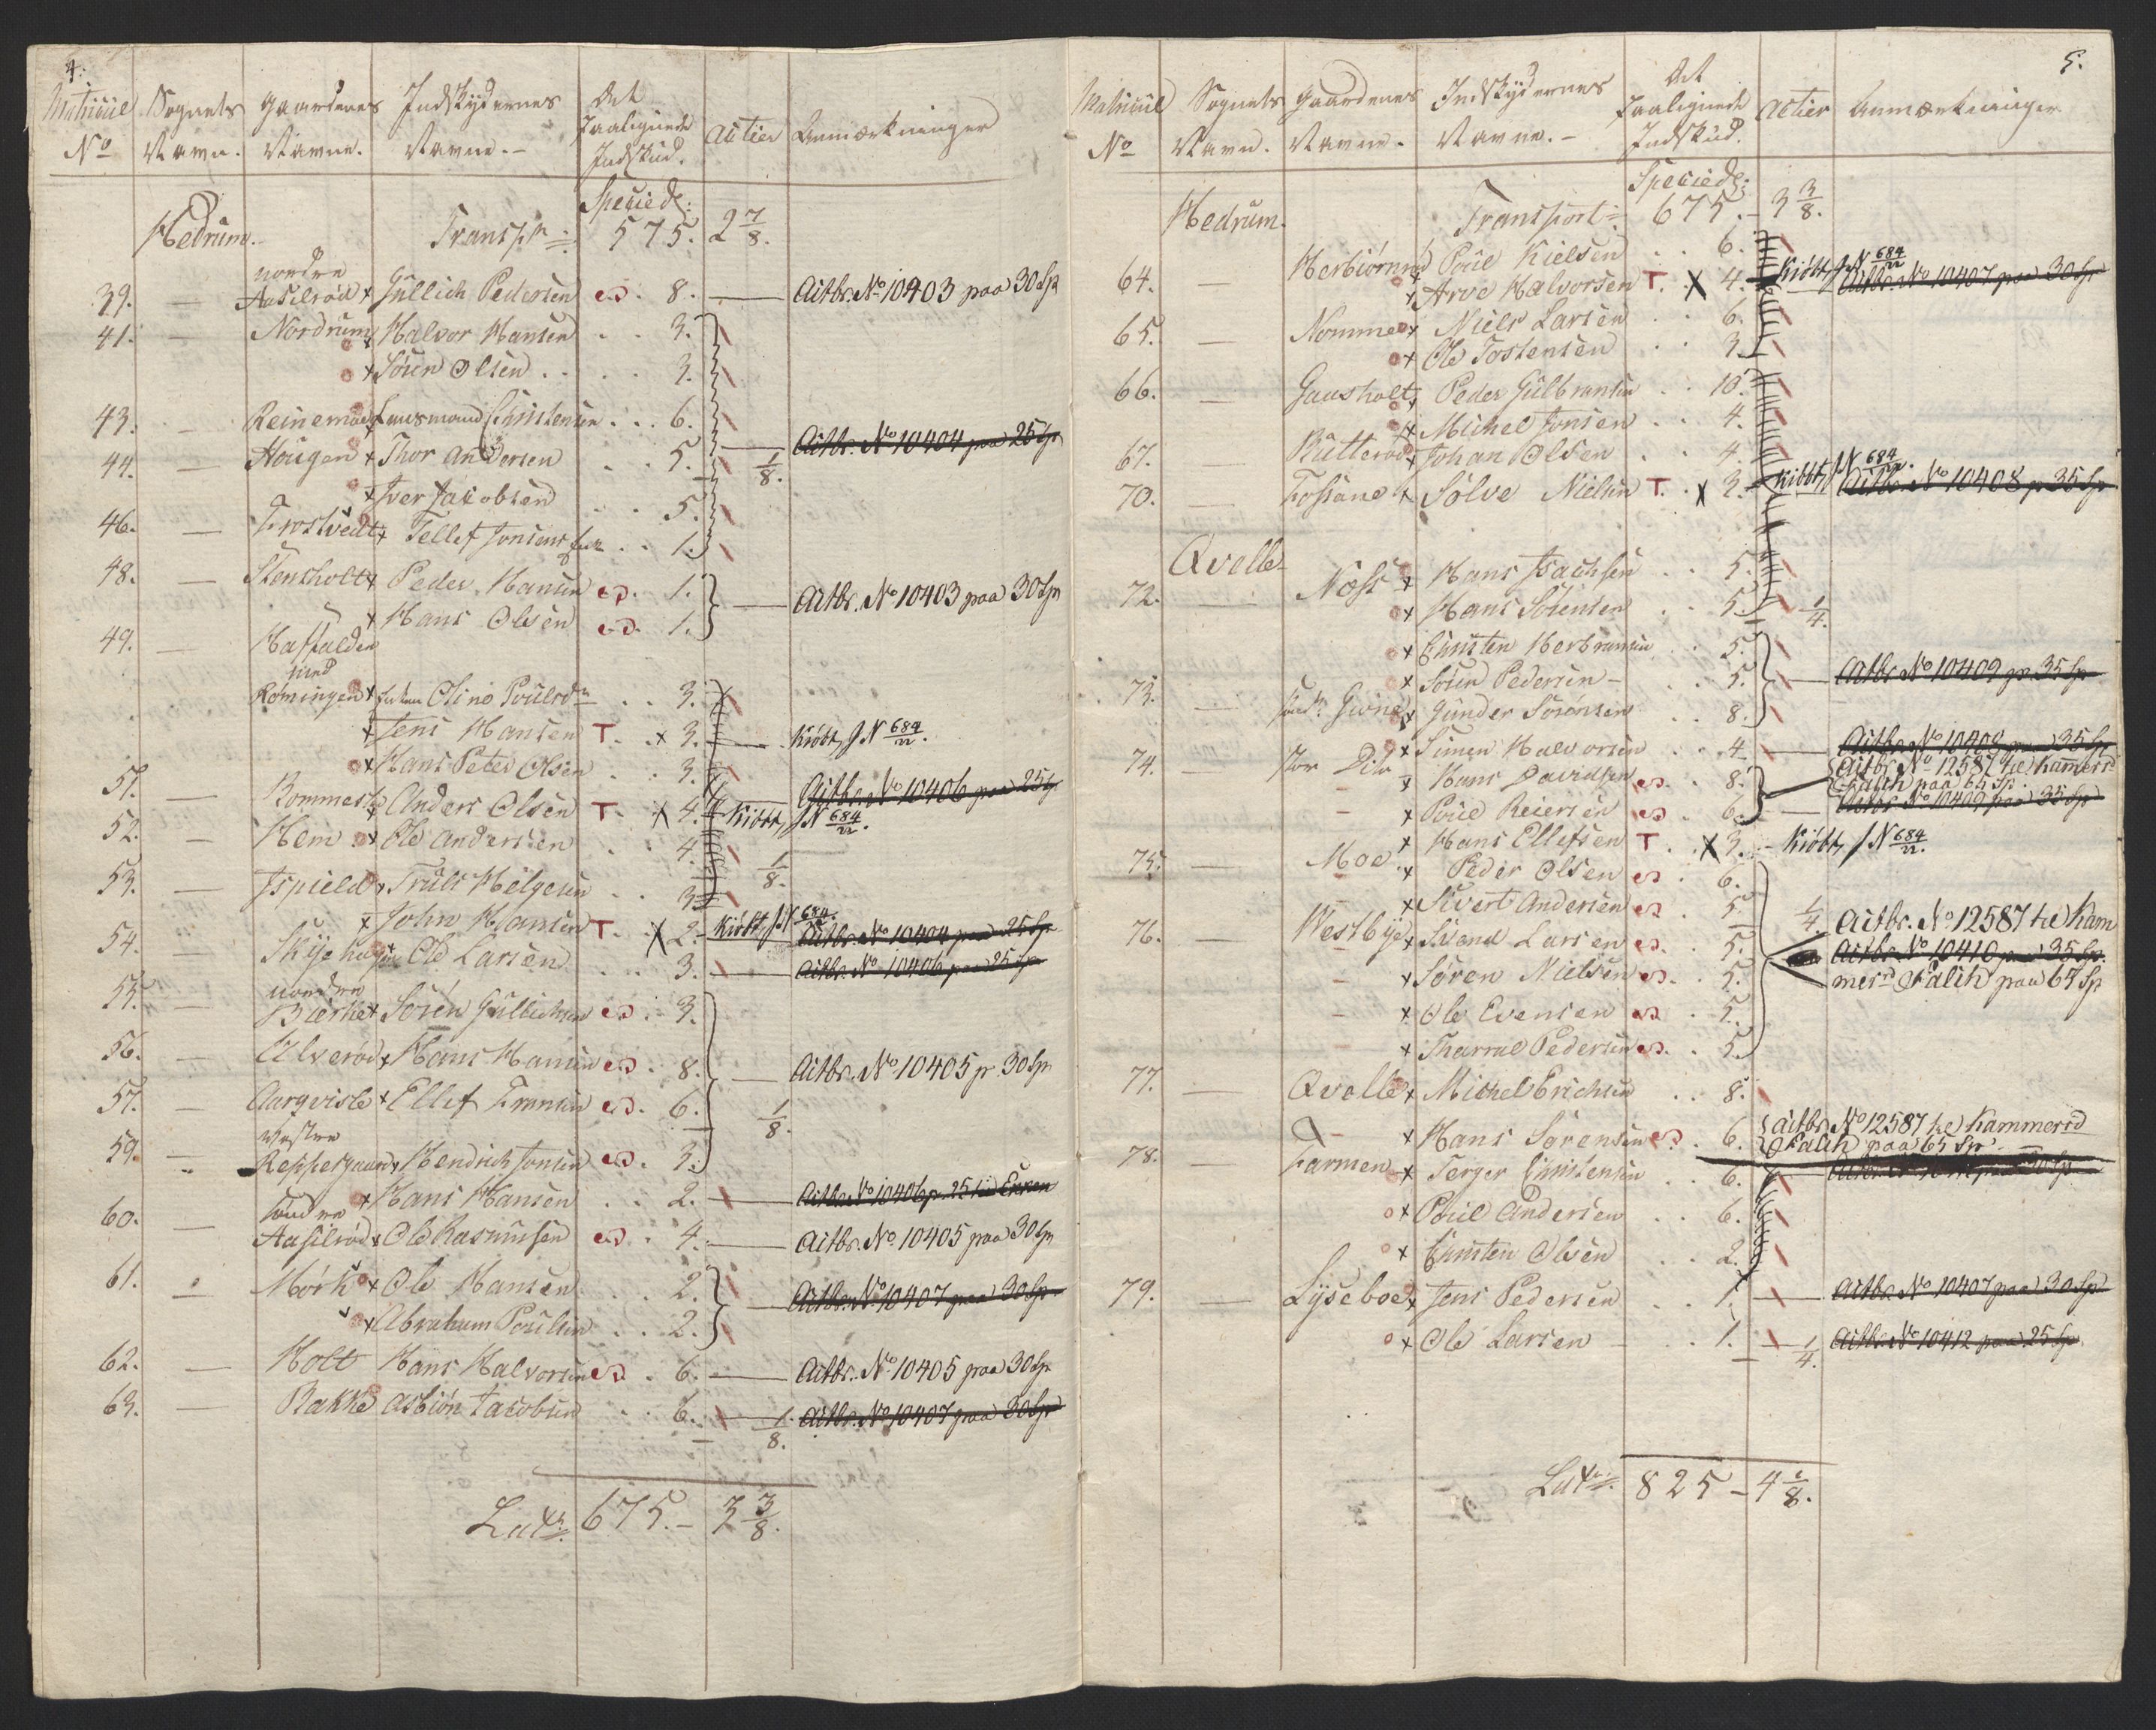 4.
Matricul No Sognets Navn. Gaardenes Navne. Indskydernes Navne. Det Paalignede Indskud. Actier Anmærkninger
Speciedr:
Hedrum. Transpt 575. 2 7/8.
39. — nordre Aasilrød x Gullich Pedersen 8. — Actbr. No 10403 paa 30 Sp
41. — Nordrum x Halvor Hansen 3.
x Søren Olsen 3.
43. — Reinemoe x Lensmand Christensen 6.
Actbr. No 10404 paa 25 Sp
44. — Hougen x Thor Andersen 5. 1/8.
x Iver Jacobsen 5.
46. — Frostvedt x Tellef Jonsens 1.
48. — Stensholt x Peder Hansen 1.
Actbr. No 10403 paa 30 Sp
x Hans Olsen 1.
49. — Haffalden
med
Rømingen x Enken Olino Poulsdr 3.
x Jens Hansen T. x 3. — Kiøbt, J N 684/22.
x Hans Peter Olsen 3.
51. — Bommestad x Anders Olsen T. x 4. Kiøbt, J N 684/22. Actbr. No 10406 paa 25 Sp
52. — Hem x Ole Andersen 4.
53. — Ispield x Truls Helgesen 3. 1/8.
x John Hansen T. x 2. Kiøbt, J N 684/22. Actbr. No 10404 paa 25 Sp
54. — Ole Larsen 3. — Actbr. No 10406 paa 25 Sp
55. — nordre Bierke x Søren Gullichsen 3.
56. — Ulverød x Hans Hansen 8. — Actbr. No 10405 pr 30 Sp
57. — Aarqvisle x Ellef Fransen 6. 1/8.
59. — Vestre Reppesgaard x Hendrich Jonsen 3.
x Hans Hansen 2. — Actbr. No 10406 pr 25 til Enken
60. — søndre Aasilrød x Ole Rasmussen 4. — Actbr. No 10405 paa 30 Sp
61. — Mørk x Ole Hansen 2.
Actbr. No 10407 paa 30 Sp
x Abraham Poulsen 2.
62. — Holt Hans Halvorsen 6. — Actbr. No 10405 paa 30 Sp
63. — Bakke Asbiøn Jacobsen 6. 1/8. Actbr. No 10407 paa 30 Sp
Lats. 675. – 3 3/8.
5.
Matricul No Sognets Navn. Gaardenes Navne. Indskydernes Navne. Det Paalignede Indskud. Actier Anmærkninger
Speciedr:
Hedrum. Transport 675. – 3 3/8.
64. — Herbiørnrød Poul Kielsen 6.
x Arve Halvorsen T. x 4. Kiøbt, J N 684/22 Actbr. No 10407 paa 30 Sp
65. — Nomme x Niels Larsen 6.
x Ole Tostensen 3.
66. — Gausholt x Peder Gulbransen 10.
x Michel Jonsen 4.
67. — Rutterød x Johan Olsen 4.
70. — Fossane x Solve Nielsen T. x 3. Kiøbt, J N 684/22. Actbr. No 10408 p 35 Sp
Qvelle
72. — Næss x Hans Isachsen 5.
x Hans Sørensen 5. 1/4.
x Christen Herbransen 5.
x Søren Pedersen 5. — Actbr. No 10409 pr 35 Sp
73. — Giøne x Gunder Sørensen 8.
74. — Stor x Simen Halvorsen 4. — Actbr. No 10408 paa 35 Sp
– x Hans Davidsen 8. Actbr. No 12587 Kammerrd Falch paa 65 Sp.
– x Poul Reiersen 6. — Actbr. No 10409 paa 35 Sp
x Hans Ellefsen T. x 3. – Kiøbt, J N 684/22.
75. — Moe x Peder Olsen 6.
– x Sivert Andersen 5. 1/4. Actbr. No 12587 Kam
76. — Westbye x Svend Larsen 5. Actbr. No 10410 paa 35 Sp.
– x Søren Nielsen 5. merrd Falch paa 65 Sp
– x Ole Evensen 5.
x Tharral Pedersen 5.
77. — Qvelle x Michel Erichsen 8.
– x Hans Sørensen 6. Actbr. No 12587 Kammerrd Falch paa 65 Sp
78. — Farmen x Terger Christensen 6.
x Poul Andersen 6.
x Christen Olsen 2.
79. — Lyseboe x Jens Pedersen 1. — Actbr. No 10407 paa 30 Sp
x Ole Larsen 1. – 1/4. Actbr. No 10412 paa 25 Sp
Lats. 825 – 4 1/8.